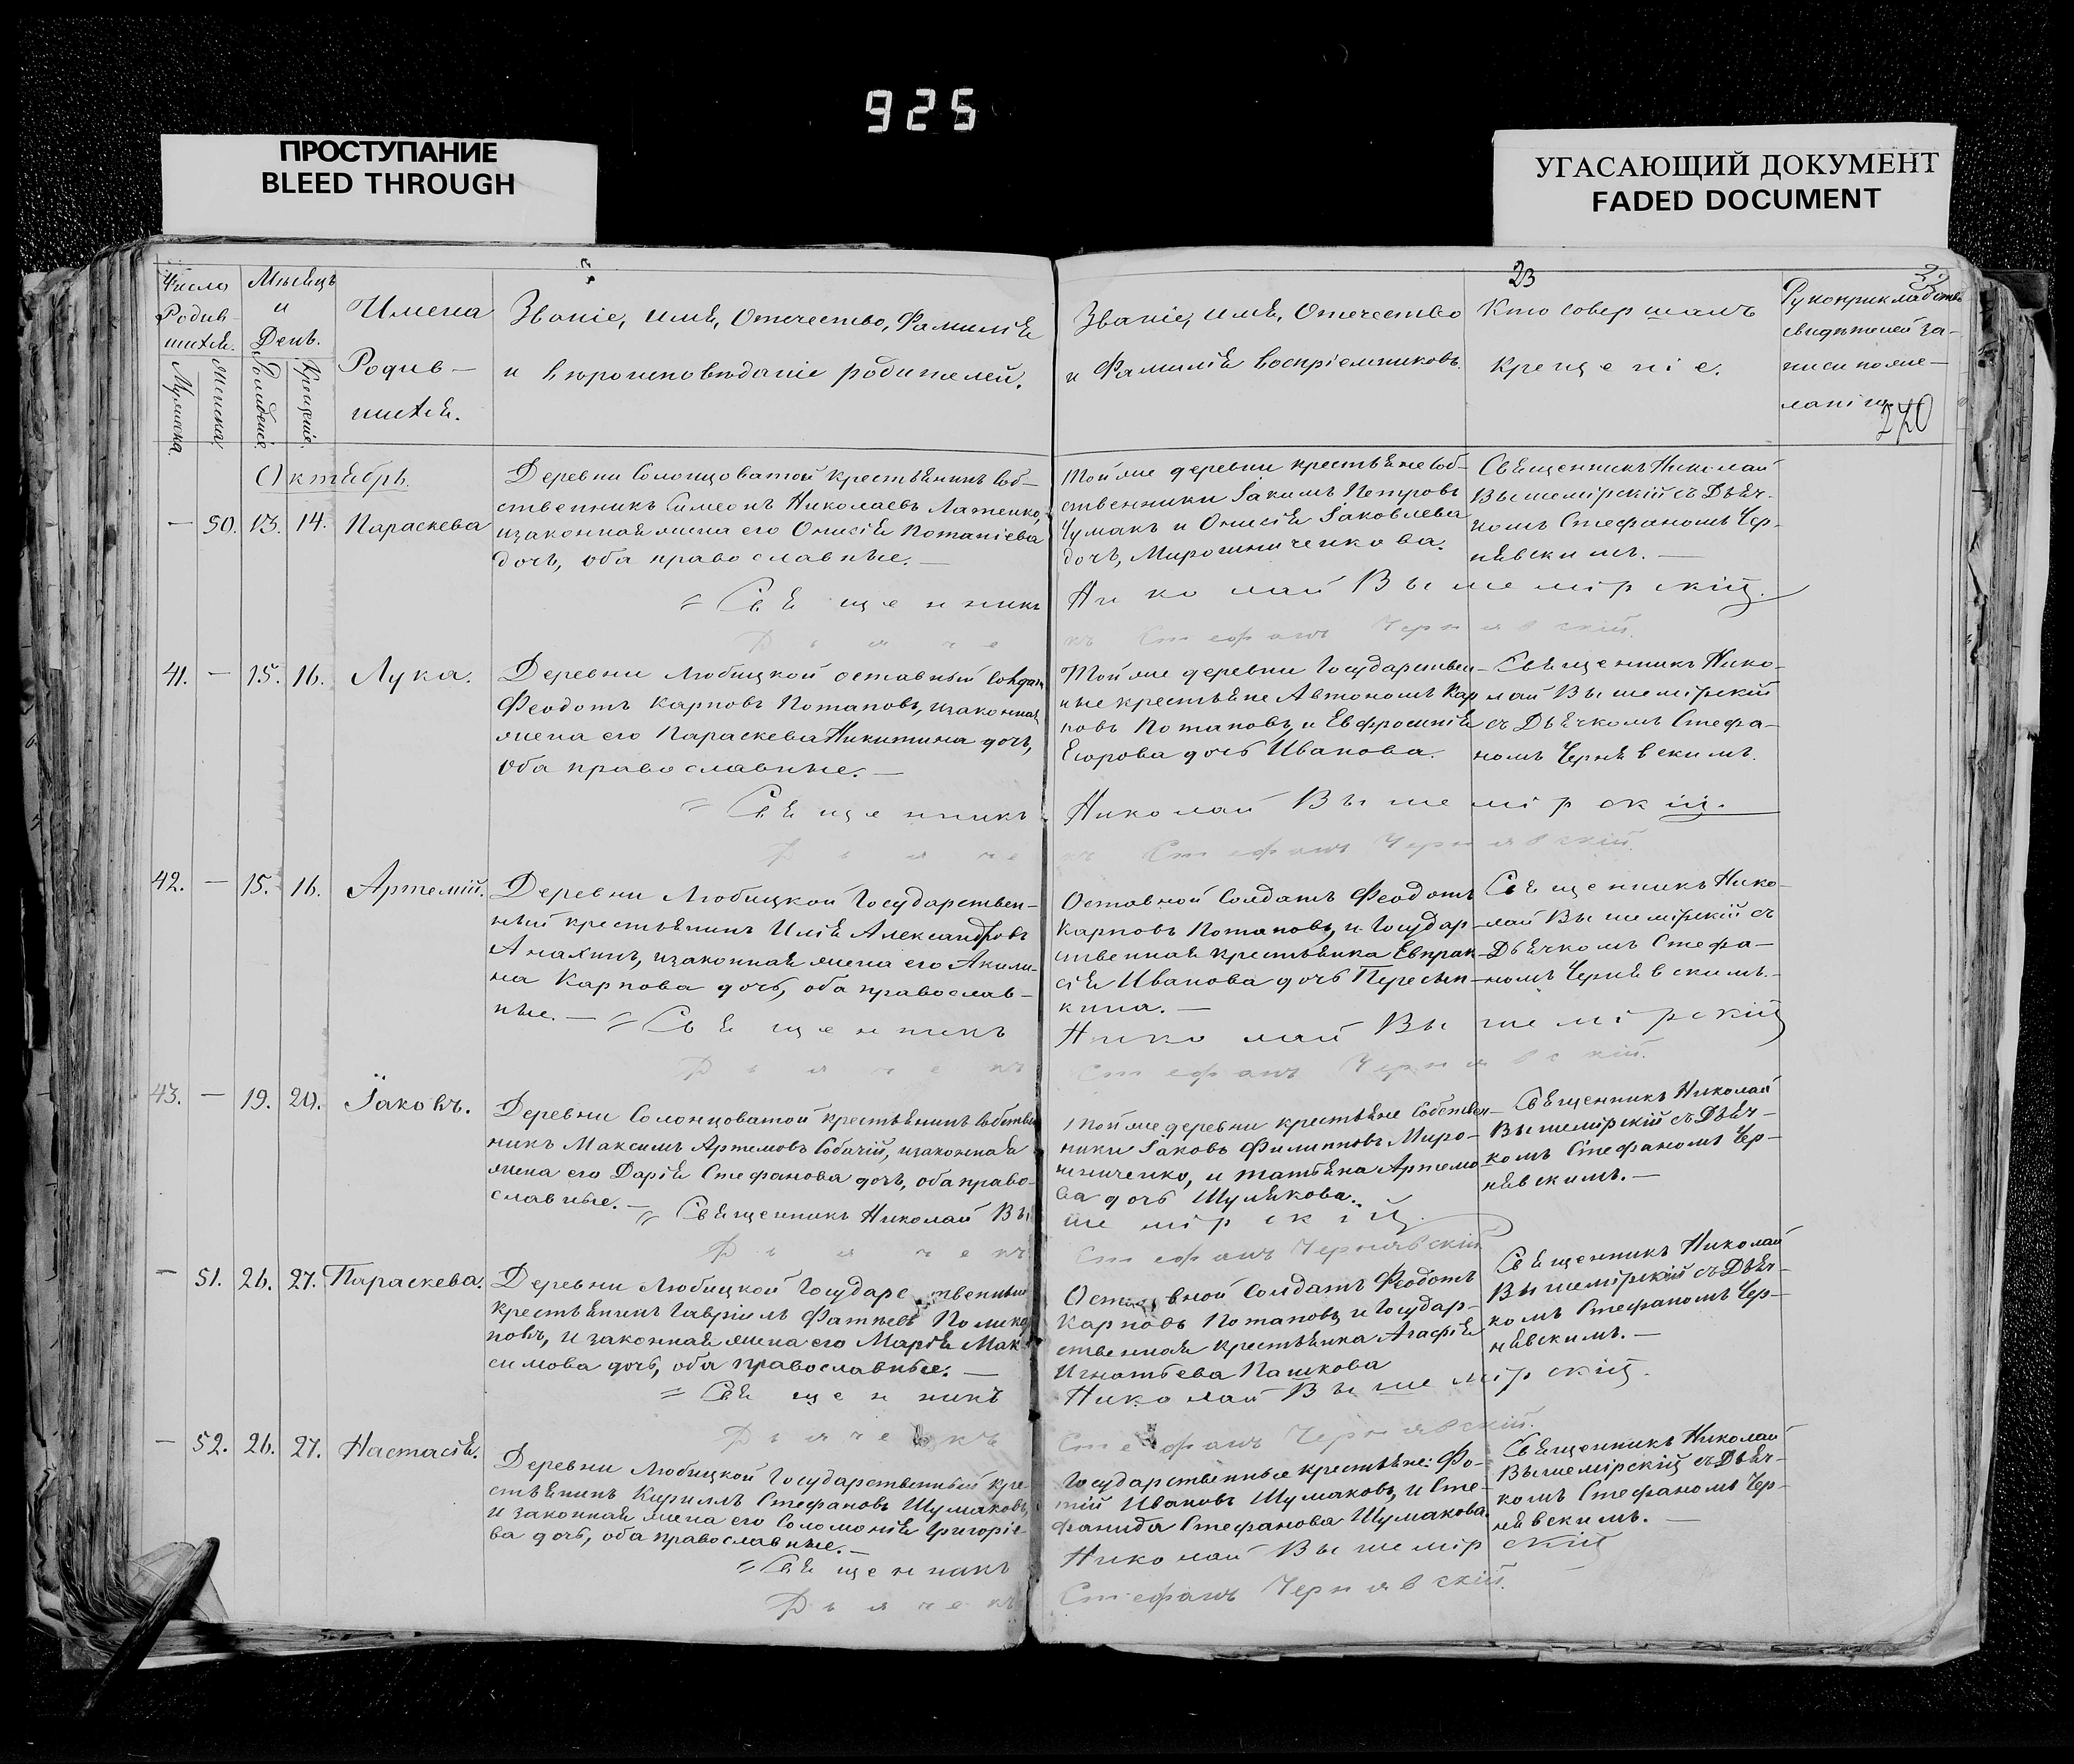 925
ПРОСТУПАНИЕ
BLEED THROUGH
УГАСАЮЩИЙ ДОКУМЕНТ
FADED DOCUMENT
23
Число
Родив-
шихся.
Мужеска.
Женска.
Мѣсяцъ
и
День.
Рожденія.
Крещенія.
Имена
Родив-
шихся.
Званіе, имя, Отечество, Фамилія
и вѣроисповѣданіе родителей.
Званіе, имя, Отечество
и Фамилія воспріемниковъ.
Кто совершалъ
крещеніе.
Рукоприкладство
свидѣтелей за-
писи по же-
ланію.
270
Октябрь.
— 50. 13. 14. Параскева
Деревни Солонцоватой крестьянинъ Соб-
ственникъ Симеонъ Николаевъ Латенко,
и законная жена его Онисія Потапіева
дочь, оба православные. —
Той же деревни крестьяне Соб-
ственники Іакимъ Петровъ
Чумакъ и Онисія Іаковлева
дочь, Мирошниченкова.
Священникъ Николай
Вышемірскій съ Дьяч-
комъ Стефаномъ Чер-
нявскимъ. —
Священникъ Николай Вышемірскій.
Дьячекъ Стефанъ Чернявскій.
41. — 15. 16. Лука.
Деревни Любицкой оставный Солдатъ
Феодотъ Карповъ Потаповъ, и законная
жена его Параскева Никитина дочь,
оба православные. —
Той же деревни Государствен-
ные крестьяне Автономъ Кар
повъ Потаповъ, и Евфросинія
Егорова дочь Иванова.
Священникъ Нико-
лай Вышемірскій
съ Дьячкомъ Стефа-
номъ Чернявскимъ.
Священникъ Николай Вышемірскій.
Дьячекъ Стефанъ Чернявскій.
42. — 15. 16. Артемій.
Деревни Любицкой Государствен-
ный крестьянинъ Илія Александровъ
Анахинъ, и законная жена его Акили-
на Карпова дочь, оба православ-
ные. —
Оставной Солдатъ Феодотъ
Карповъ Потаповъ, и Государ-
ственная крестьянка Евпрак-
сія Иванова дочь Пересып-
кина. —
Священникъ Нико-
лай Вышемірскій съ
Дьячкомъ Стефа-
номъ Чернявскимъ.
Священникъ Николай Вышемірскій
Дьячекъ Стефанъ Чернявскій.
43. — 19. 20. Іаковъ.
Деревни Солонцоватой крестьянинъ Собствен
никъ Максимъ Артемовъ Собачій, и законная
жена его Дарія Стефанова дочь, оба право-
славные. —
Той же деревни крестьяне Собствен-
ники Іаковъ Филипповъ Миро-
шниченко, и Татьяна Артемо
ва дочь Шулякова.
Священникъ Николай
Вышемірскій съ Дьяч-
комъ Стефаномъ Чер-
нявскимъ. —
Священникъ Николай Вышемірскій
Дьячекъ Стефанъ Чернявскій
— 51. 26. 27. Параскева.
Деревни Любицкой Государственный
крестьянинъ Гавріилъ
и законная жена его Марія Мак-
симова дочь, оба православные. —
Оставной Солдатъ Феодотъ
Карповъ Потаповъ, и Государ-
ственная крестьянка Агафія
Игнатьева Пашкова
Священникъ Николай
Вышемірскій съ Дьяч-
комъ Стефаномъ Чер-
нявскимъ. —
Священникъ Николай Вышемірскій.
Дьячекъ Стефанъ Чернявскій.
— 52. 26. 27. Настасія.
Деревни Любицкой Государственный кре-
стьянинъ Кириллъ Стефановъ Шумаковъ,
и законная жена его Соломонія Григоріе-
ва дочь, оба православные. —
Государственные крестьяне: Фо-
тій Ивановъ Шумаковъ, и Сте-
фанида Стефанова Шумакова.
Священникъ Николай
Вышемірскій съ Дьяч-
комъ Стефаномъ Чер-
нявскимъ. —
Священникъ Николай Вышемірскій
Дьячекъ Стефанъ Чернявскій.